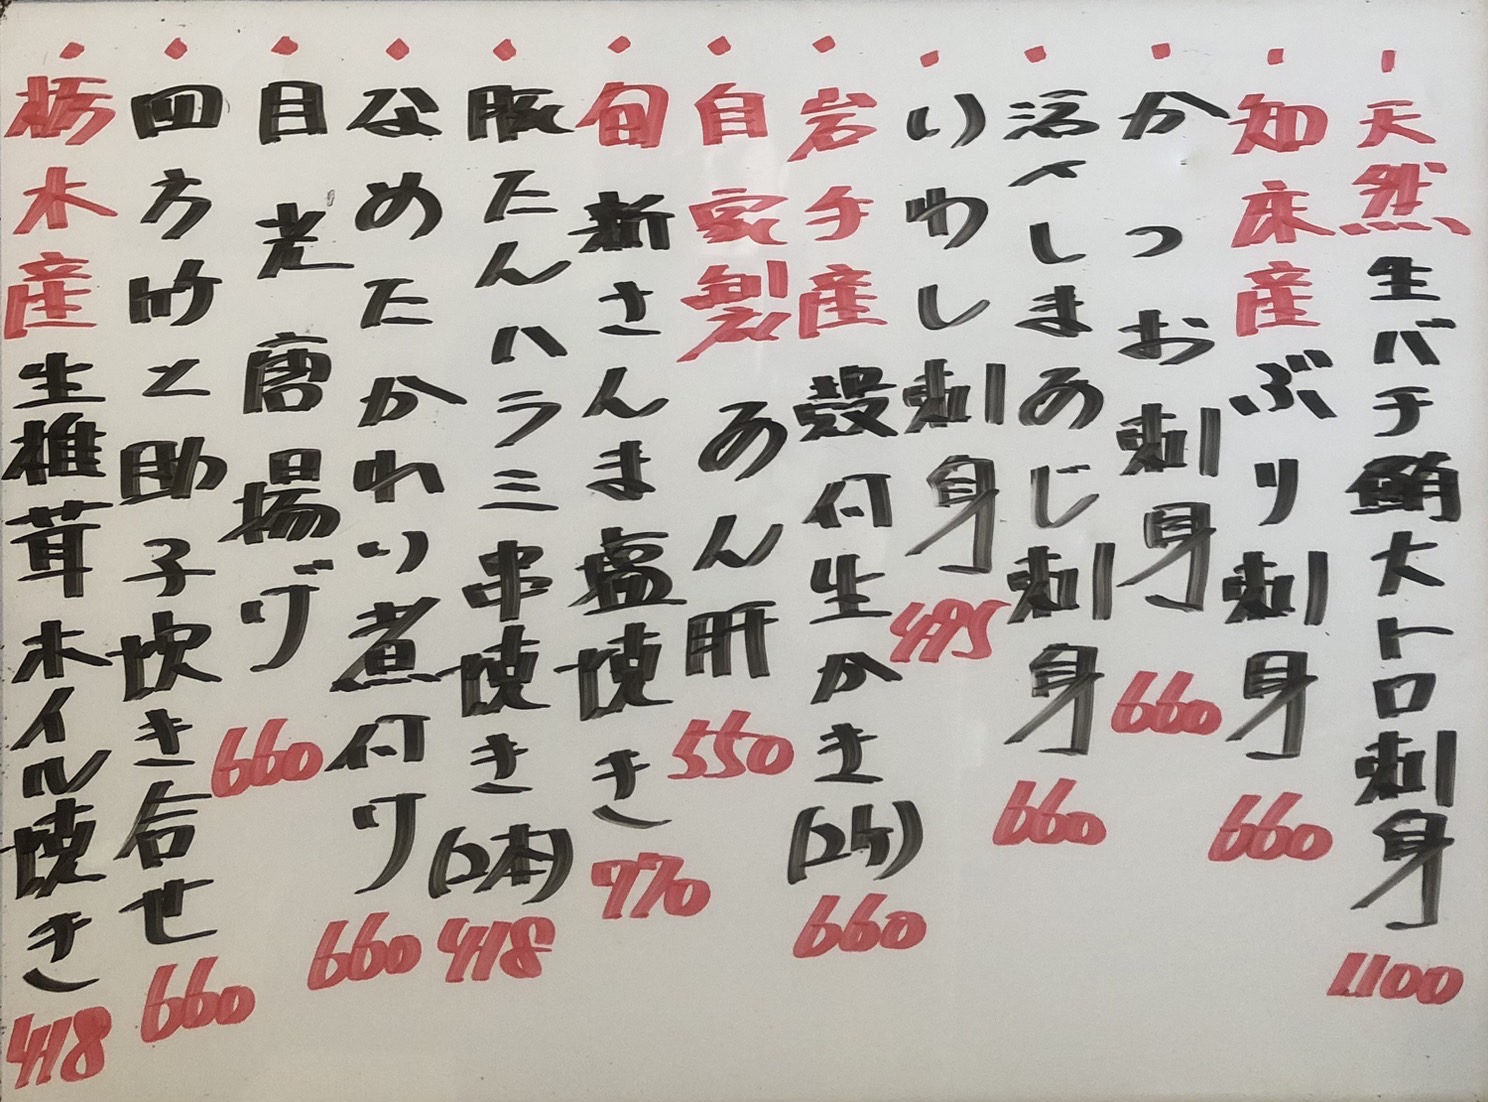 ・天然生バチ鮪大トロ刺身 1100
・知床産ぶり刺身 660
・かつお刺身 660
・活〆しまあじ刺身 660
・いわし刺身 495
・岩手産殻付生かき(2ケ) 660
・自家製あん肝 550
・旬新さんま塩焼き 770
・豚たんハラミ串焼き(2本) 418
・なめたかれい煮付け 660
・目光唐揚げ 660
・四方竹と助子炊き合せ 660
・栃木産生椎茸ホイル焼き 418